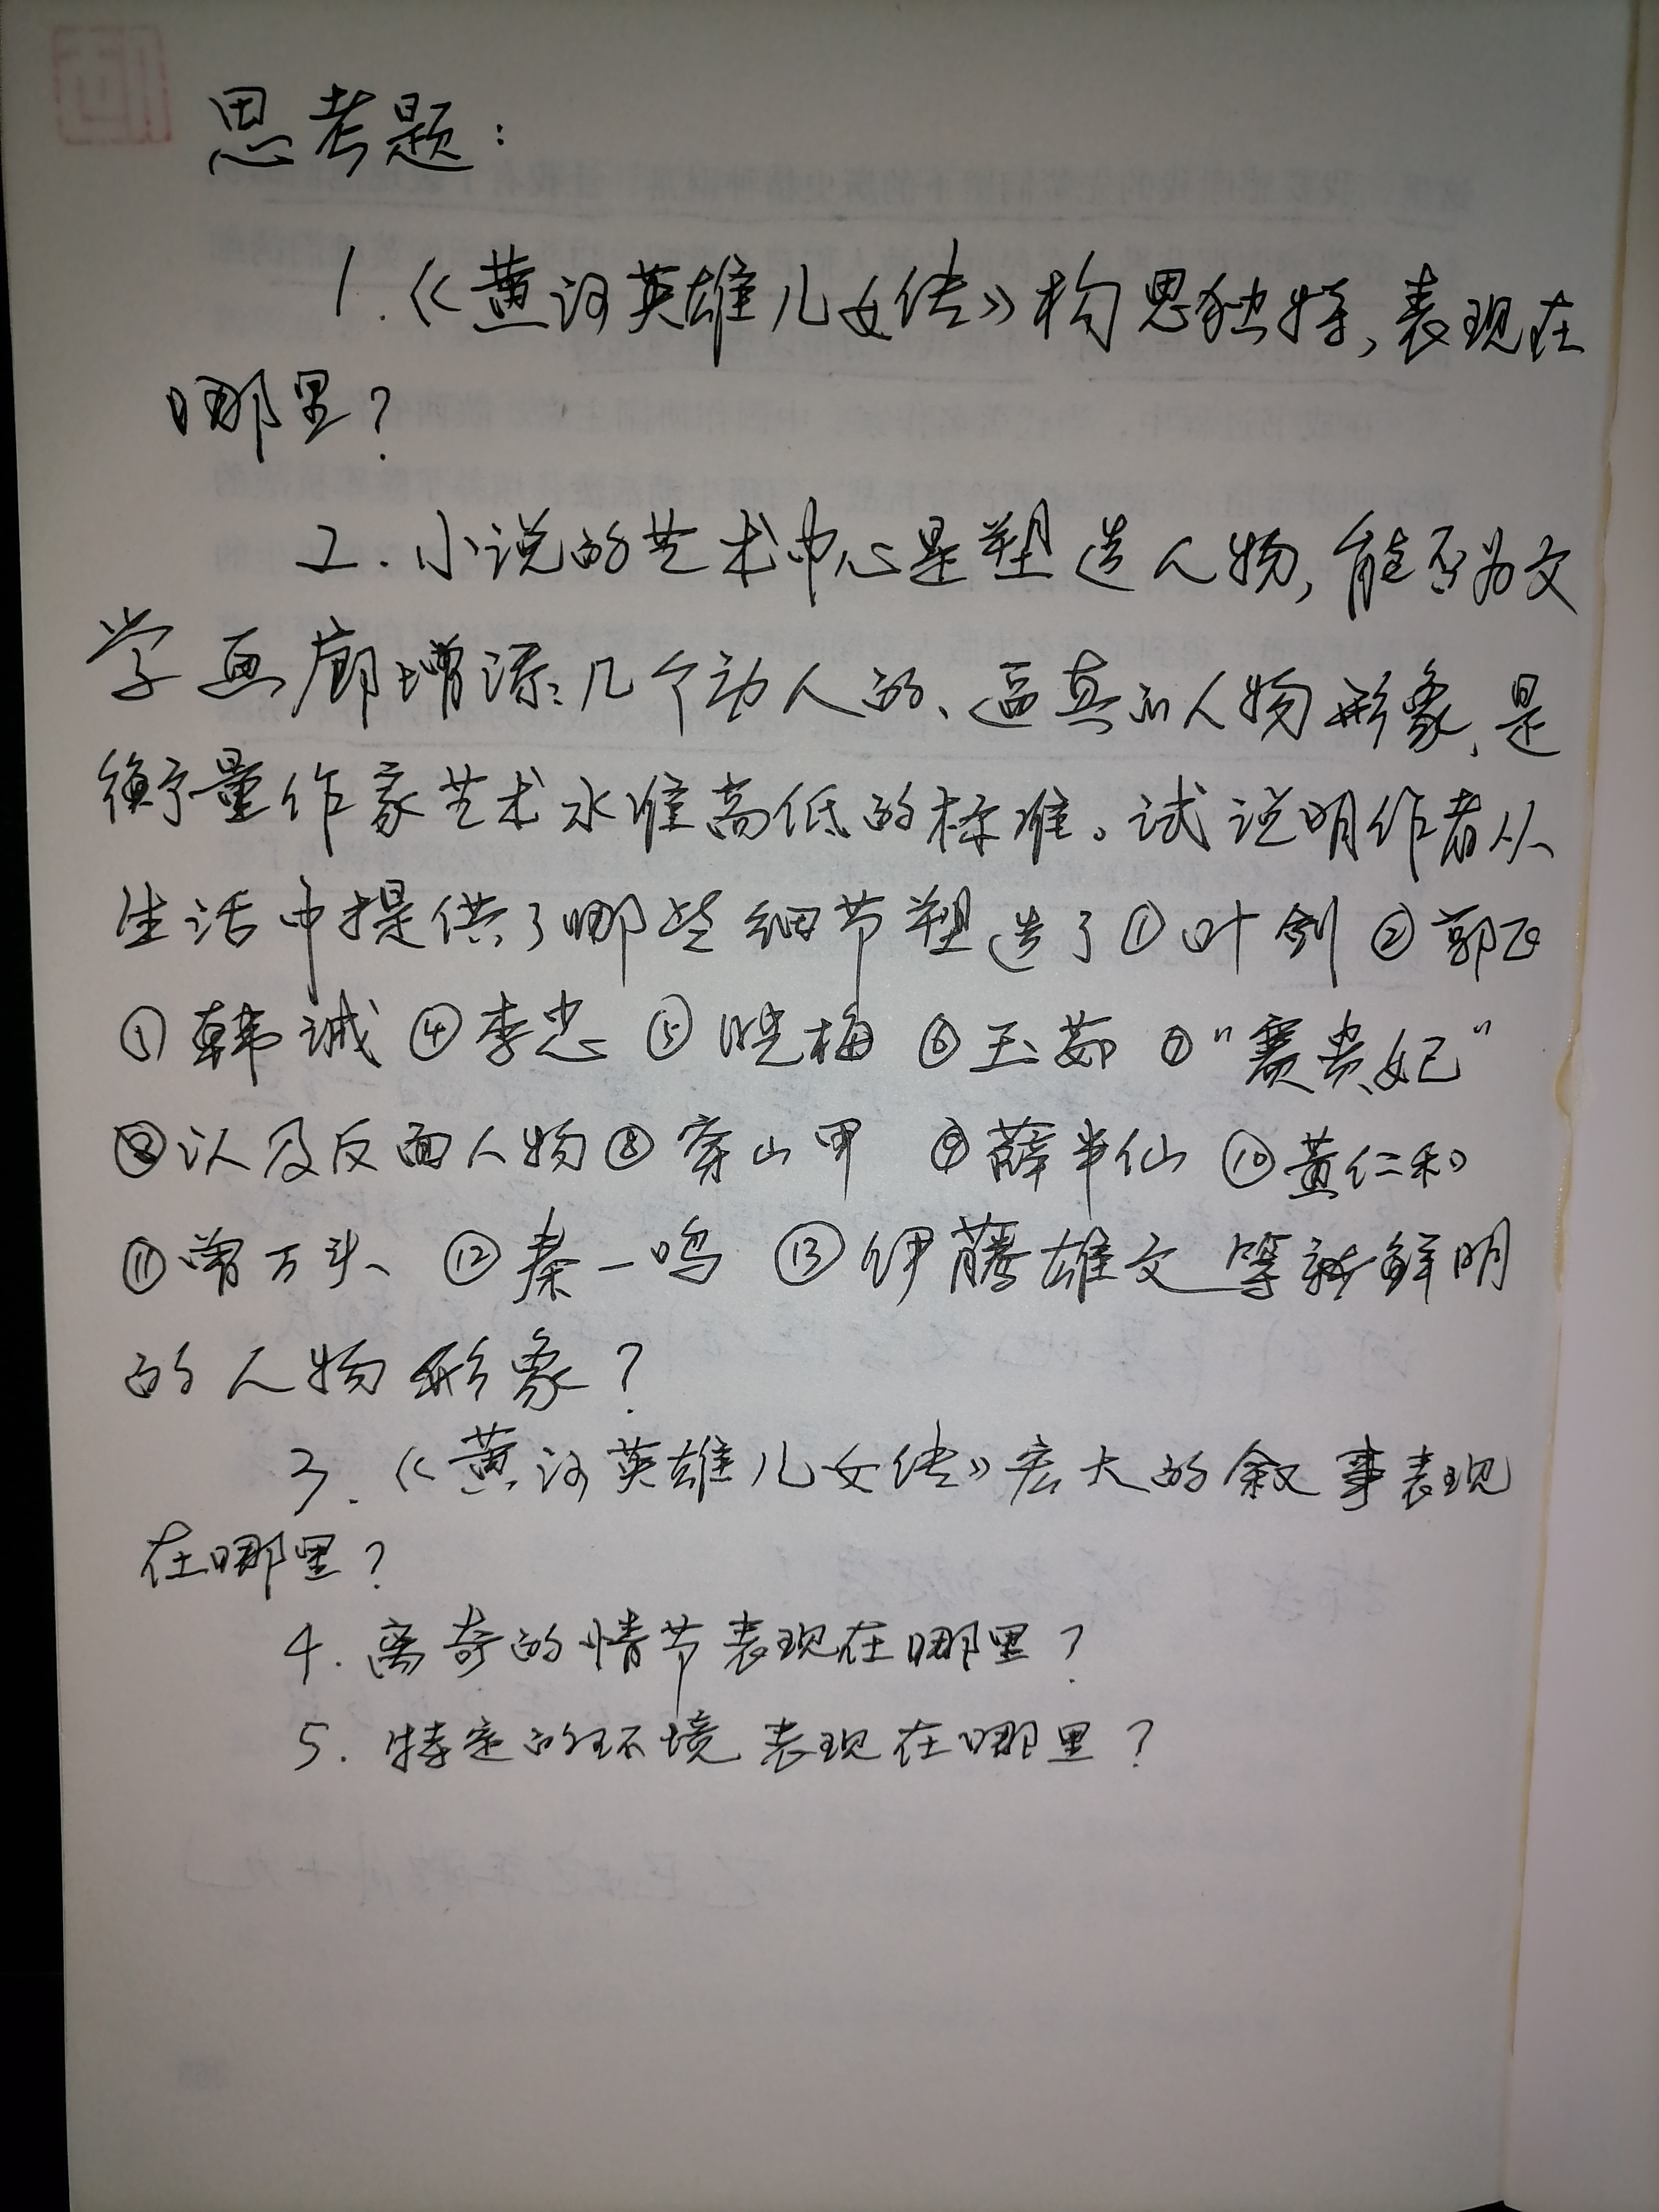 思考题：
1.《黄河英雄儿女传》构思独特，表现在
哪里？
2.小说的艺术中心是塑造人物，能否为文
学画廊增添几个动人的、逼真的人物形象，是
衡量作家艺术水准高低的标准。试说明作者从
生活中提供了哪些细节塑造了①叶剑②郭飞
③韩诚④李忠⑤晓梅⑥玉茹⑦"赛贵妃"
以及反面人物⑧穿山甲⑨薛半仙⑩黄仁和
⑪曾万斗⑫秦一鸣⑬伊藤雄文等鲜明
的人物形象？
3.《黄河英雄儿女传》宏大的叙事表现
在哪里？
4.离奇的情节表现在哪里？
5.特定的环境表现在哪里？